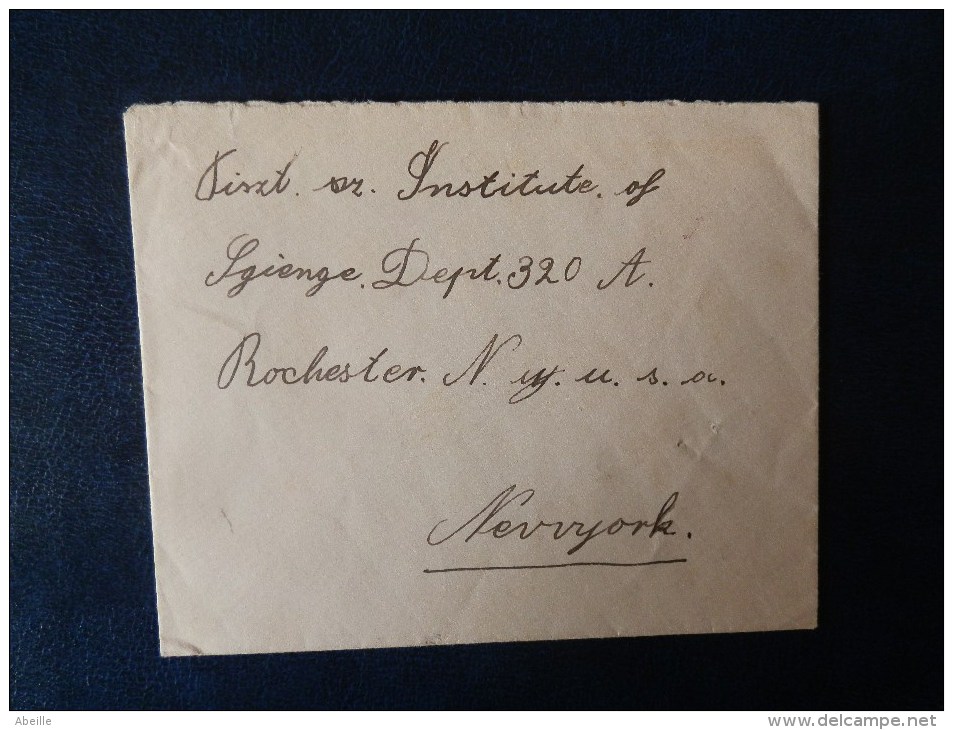 Tiszt. sz. Institute. of
Sgienge. Dept. 320 A.
Rochester. N. y. u. s. a.
Nevvyork.
Abeille
www.delcampe.net